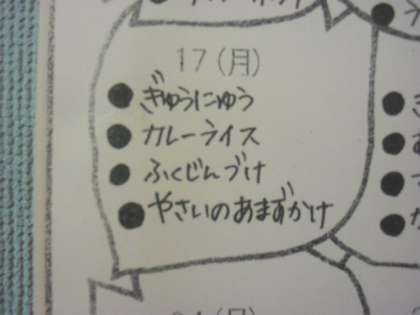 17(月)
●ぎゅうにゅう
●カレーライス
●ふくじんづけ
●やさいのあまずかけ